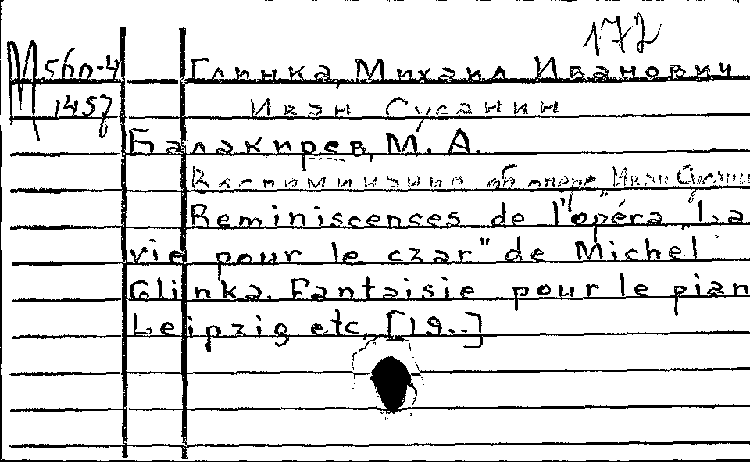 172
М 560-4 Глинка, Михаил Иванович
1457 Иван Сусанин
Балакирев, М. А.
Воспоминания об опере "Иван Сусани
Reminiscences de l'opéra "La
vie pour le czar" de Michel
Glinka. Fantaisie pour le pian
Leipzig etc. [19..]